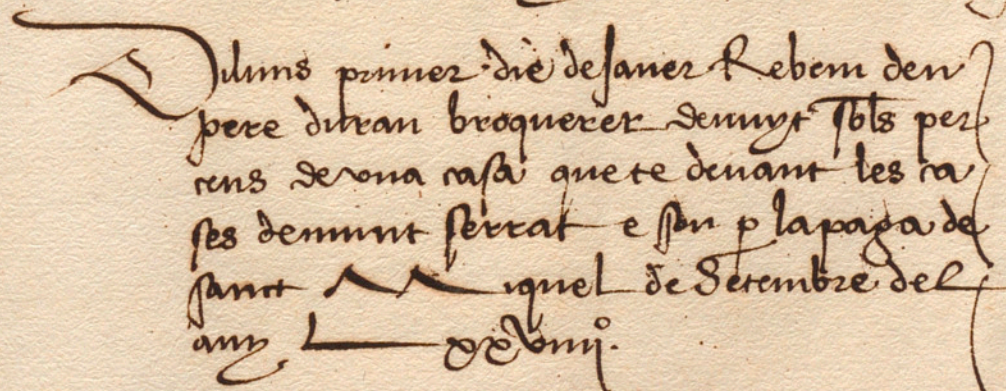 Diluns primer die de Janer Rebem den
pere duran broquerer denuyt sols per
cens de vna casa que te deuant les ca
ses de munt serrat e son p la paga de
sanct Miquel de Setembre del
any Lxxviiijº.